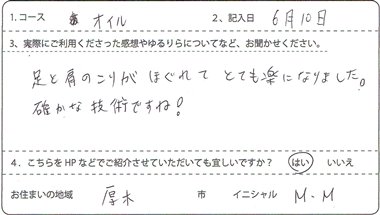 1.コース オイル 2、記入日 6月10日
3、実際にご利用くださった感想やゆるりらについてなど、お聞かせください。
足と肩のこりが ほぐれて とても楽になりました。
確かな技術ですね!
4．こちらをHPなどでご紹介させていただいても宜しいですか？ はい いいえ
お住まいの地域 厚木 市 イニシャル M.M